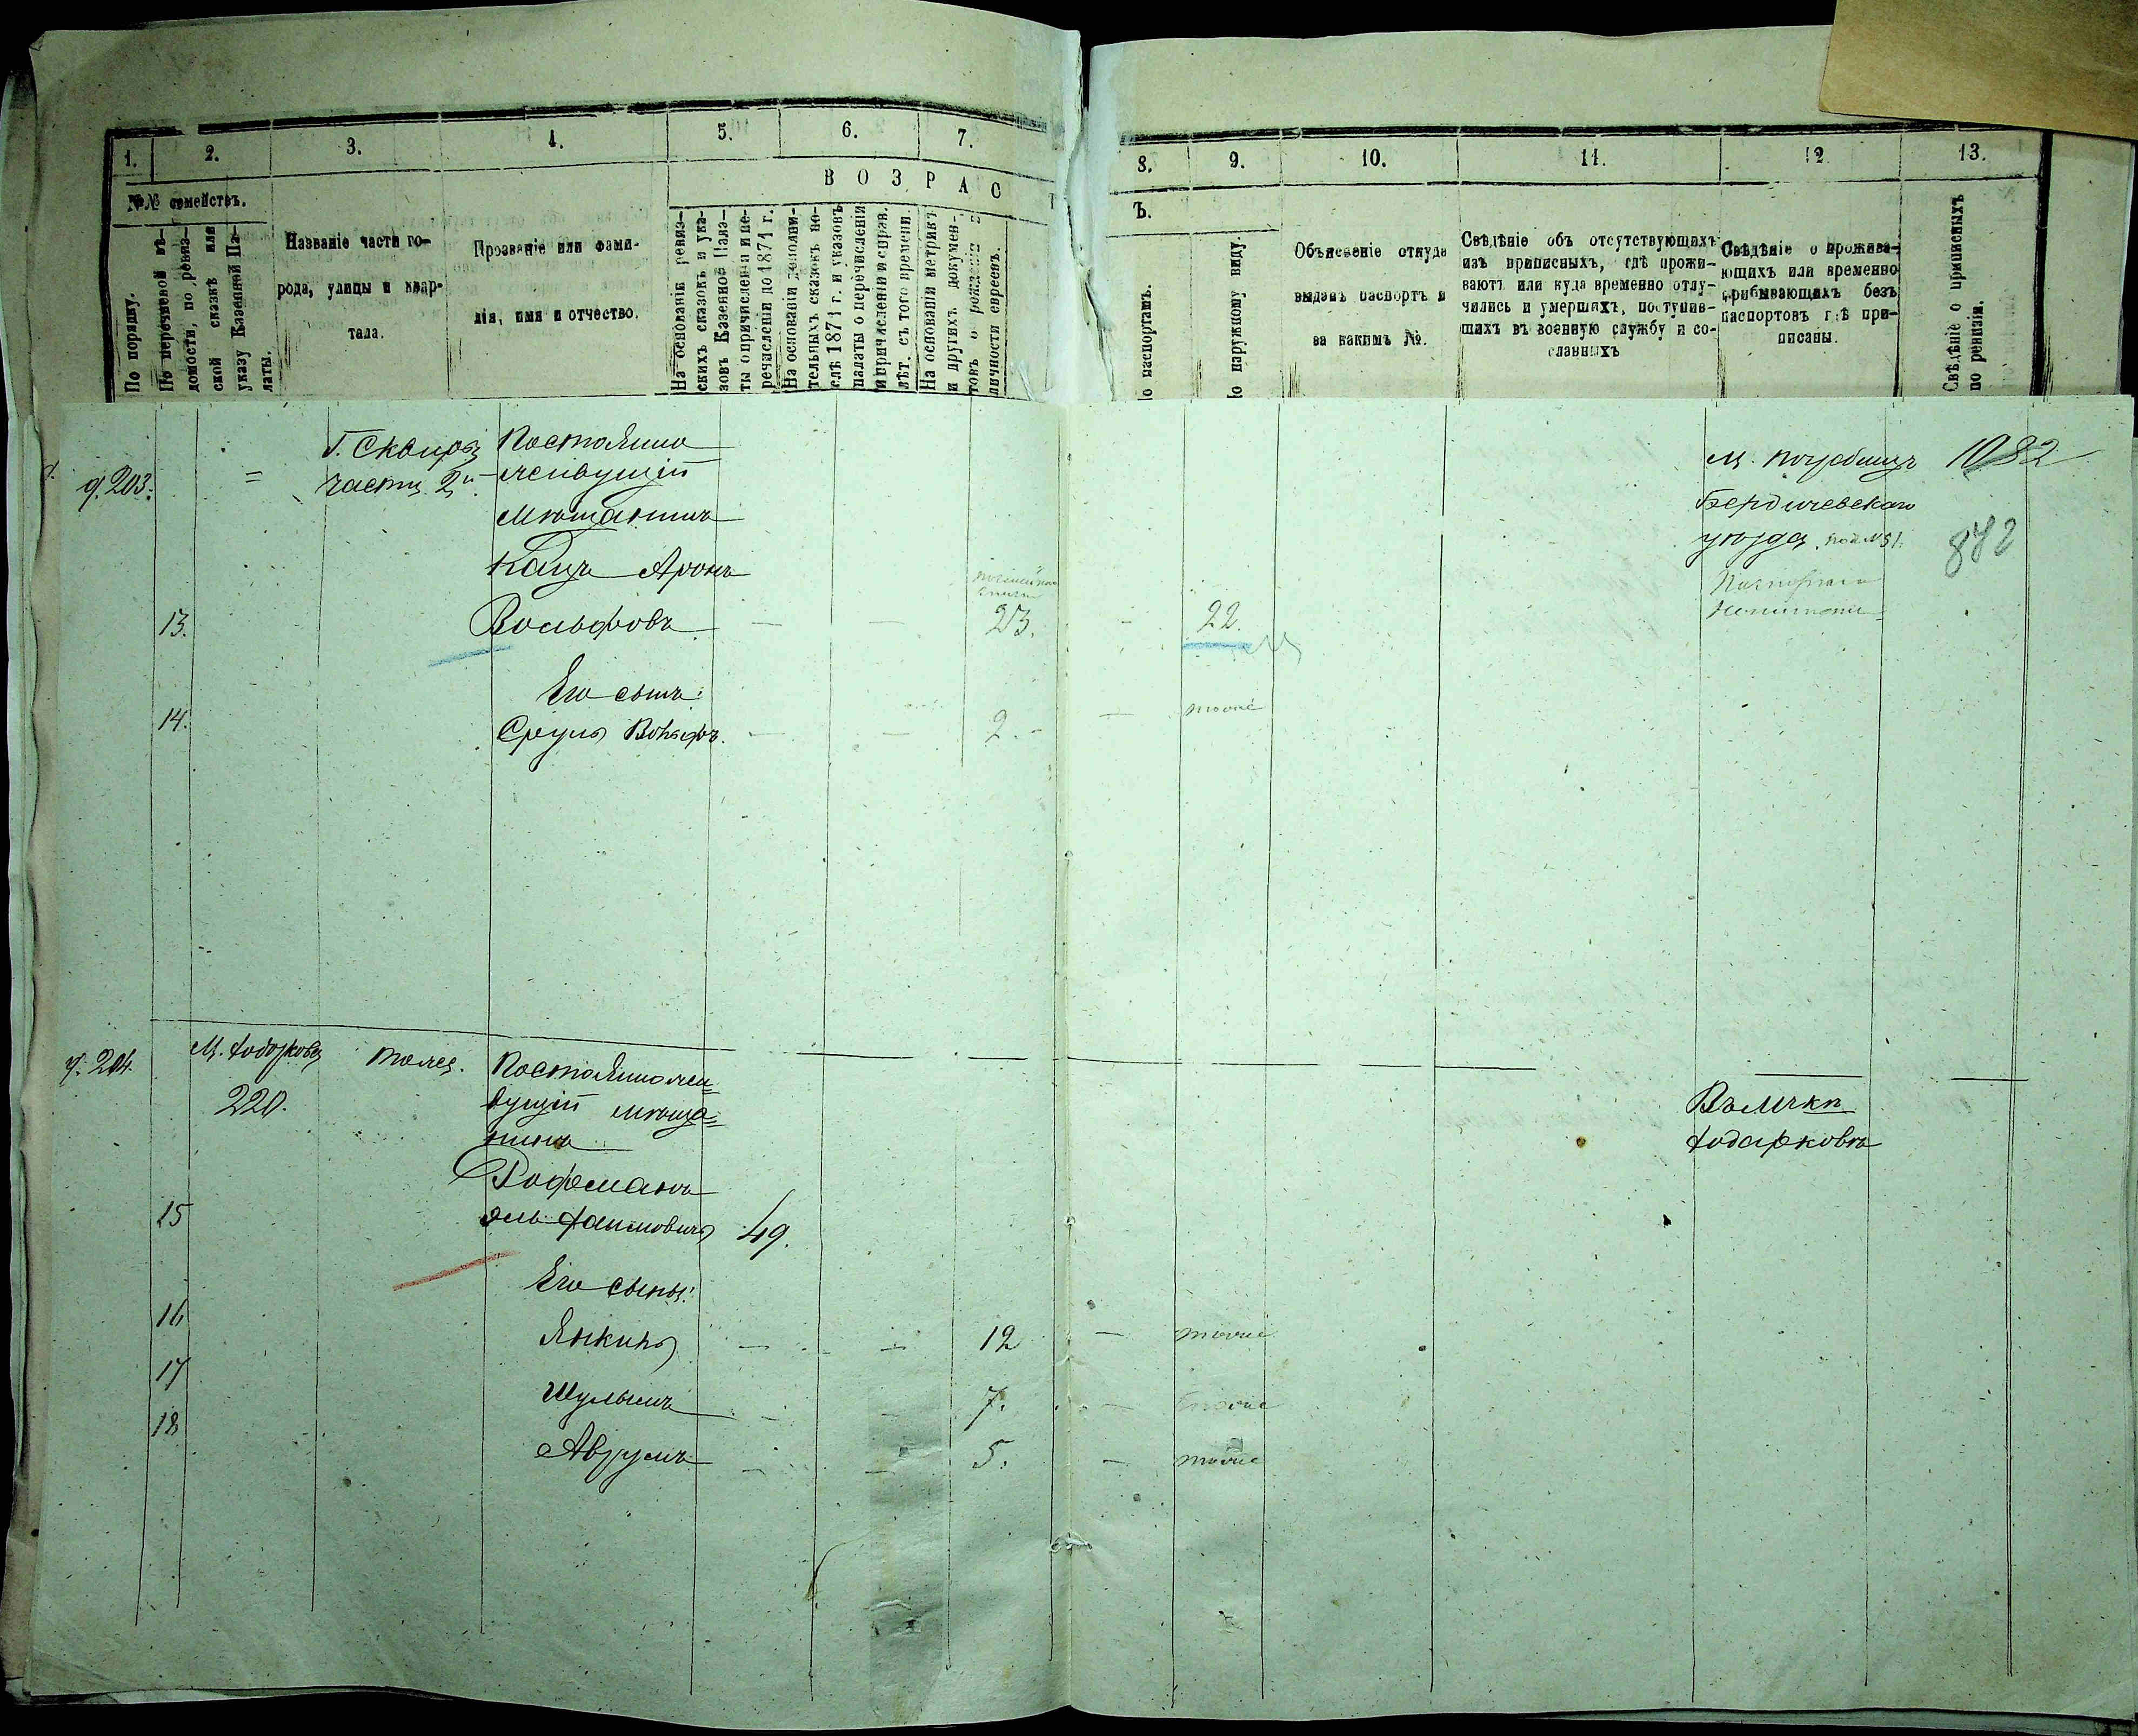 1.
2.
3.
4.
5.
6.
7.
8.
9.
10.
11.
12
13.
№№ семействъ.
ВОЗРАС
Ъ.
По порядку.
По перечневой вѣ-
домости, по ревиз-
ской сказкѣ или
указу Казенной Па-
латы.
Названіе части го-
рода, улицы и квар-
тала.
Прозваніе или фами-
лія, имя и отчество.
На основаніи ревиз-
скихъ сказокъ и ука-
зовъ Казенной Пала-
ты о причисленіи и пе-
речисленіи до 1871 г.
На основаніи дополни-
тельныхъ сказокъ по-
слѣ 1871 г. и указовъ
палаты о перечисленіи
и причисленіи и справ.
лѣт. съ того времени.
На основаніи метрикъ
и другихъ докумен-
товъ о рожденіи и
личности евреевъ.
о паспортамъ.
о наружному виду.
Объясненіе откуда
выданъ паспортъ и
за какимъ №.
Свѣдѣніе объ отсутствующихъ
изъ приписныхъ, гдѣ прожи-
ваютъ или куда временно отлу-
чились и умершихъ, поступив-
шихъ въ военную службу и со-
сланныхъ
Свѣдѣніе о прожива-
ющихъ или временно
прибывающихъ безъ
паспортовъ гдѣ при-
писаны.
Свѣдѣніе о приписныхъ
по ревизіи.
203.
=
Г. Сквира
части 2й
Постоянно
живущій
Мѣщанинъ
Кацъ Аронъ
13.
Вольфовъ
23.
22.
Его сынъ:
14.
Сруль Вольфъ.
2.
тоже
Бердичевскаго
уѣзда
1082
872
204.
220.
тоже.
Постоянно жи=
вущій мѣща=
нинъ
Рофманъ
15
49.
Его сыны:
16
Янкель
12
тоже
17
Шулымъ
7.
тоже
18
Аврумъ
5.
тоже
Ходорковъ